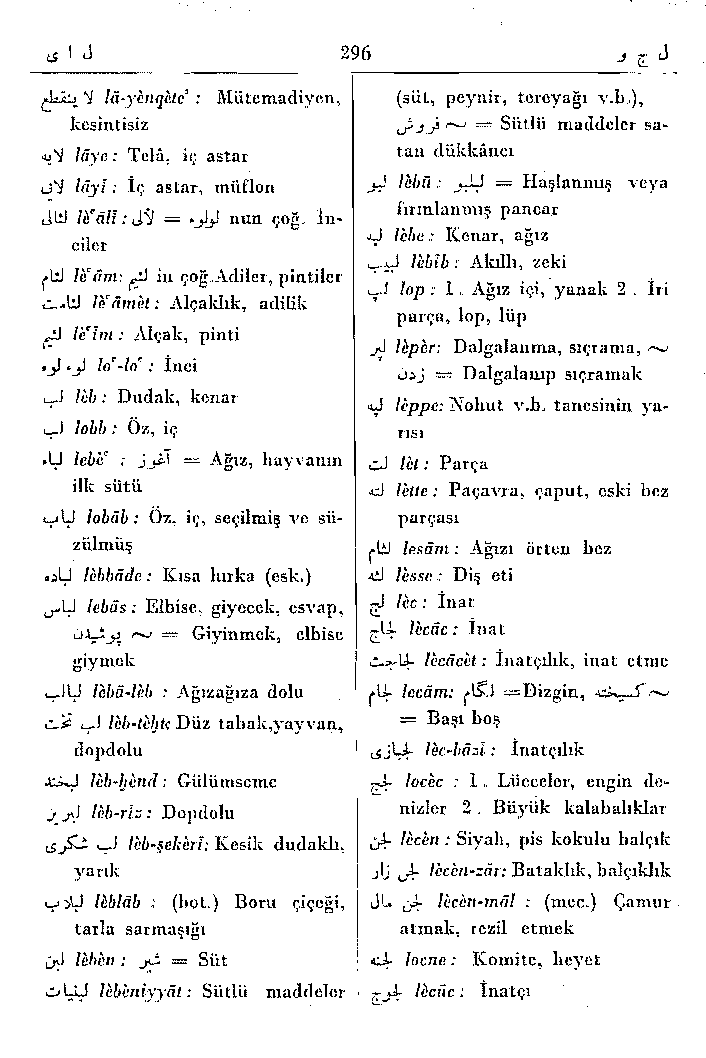 ل ا ی 296 ل ج و
لا ينقطع lā-yènqète' : Mütemadiyen,
kesintisiz
لایه lāye : Telâ, iç astar
لای lāyî : İç astar, müflon
لئالی lè'âlî : لآلی = لولوء nun çoğ. İn-
ciler
لئام lè'âm: لئیم in çoğ. Adiler, pintiler
لئامت lè'âmèt : Alçaklık, adilik
لئیم lè'îm : Alçak, pinti
لوء لوء lo'-lo' : İnci
لب lèb : Dudak, kenar
لب lobb : Öz, iç
لباء lebè' : آغوز = Ağız, hayvanın
ilk sütü
لباب lobāb : Öz, iç, seçilmiş ve sü-
zülmüş
لباده lèbbāde : Kısa hırka (esk.)
لباس lebās : Elbise, giyecek, esvap,
پوشیدن ~ = Giyinmek, elbise
giymek
لبالب lèbā-lèb : Ağızağıza dolu
لب تخت lèb-tèḫt: Düz tabak, yayvan,
dopdolu
لبخند lèb-ḫènd : Gülümseme
لبریز lèb-rîz : Dopdolu
لب شکری lèb-şekèrî: Kesik dudaklı,
yarık
لبلاب lèblāb : (bot.) Boru çiçeği,
tarla sarmaşığı
لبن lèbèn : شیر = Süt
لبنیات lèbèniyyāt : Sütlü maddeler
(süt, peynir, tereyağı v.b.),
فروش ~ = Sütlü maddeler sa-
tan dükkâncı
لبو lèbū : لبلبو = Haşlanmış veya
fırınlanmış pancar
لبه lèbe : Kenar, ağız
لبیب lèbîb : Akıllı, zeki
لپ lop : 1. Ağız içi, yanak 2. İri
parça, lop, lüp
لپر lèpèr: Dalgalanma, sıçrama, ~
زدن = Dalgalanıp sıçramak
لپه lèppe: Nohut v.b. tanesinin ya-
rısı
لت lèt : Parça
لته lètte : Paçavra, çaput, eski bez
parçası
لثام lesām : Ağızı örten bez
لثه lèsse : Diş eti
لج lèc : İnat
لجاج lècāc : İnat
لجاجت lècācèt : İnatçılık, inat etme
لجام lecām: لگام = Dizgin, گسیخته ~
= Başı boş
لجبازی lèc-bāzî : İnatçılık
لجج locèc : 1. Lücceler, engin de-
nizler 2. Büyük kalabalıklar
لجن lècèn : Siyah, pis kokulu balçık
لجن زار lècèn-zār: Bataklık, balçıklık
لجن مال lècèn-māl : (mec.) Çamur
atmak, rezil etmek
لجنه locne : Komite, heyet
لجوج lècūc : İnatçı